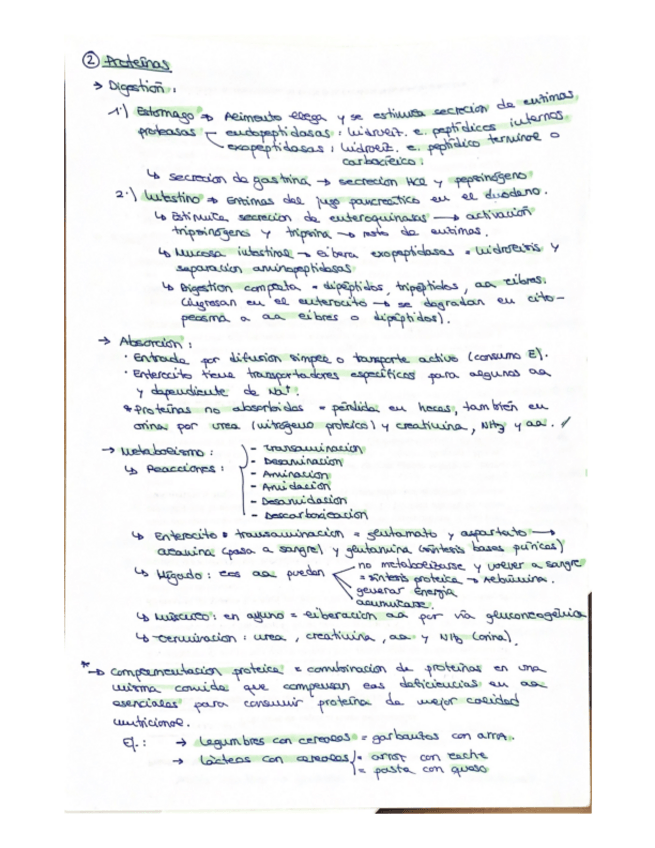 ② Proteínas
→ Digestión:
1.) Estómago → Alimento llega y se estimula secreción de enzimas
proteasas - endopeptidasas: hidroliz. e. peptídicos internos
exopeptidasas: hidroliz. e. peptídico terminal o
carboxílico.
↳ secreción de gastrina → secreción HCl y pepsinógeno
2.) Intestino → Enzimas del jugo pancreático en el duodeno.
↳ Estimula secreción de enteroquinasa → activación
tripsinógeno y tripsina → resto de enzimas.
↳ Mucosa intestinal → libera exopeptidasas = hidrólisis y
separación aminopeptidasas
↳ Digestión completa = dipéptidos, tripéptidos, aa libres.
(Ingresan en el enterocito → se degradan en cito-
plasma a aa libres o dipéptidos).
→ Absorción:
· Entrada por difusión simple o transporte activo (consumo E).
· Enterocito tiene transportadores específicos para algunos aa
y dependiente de Na⁺.
* Proteínas no absorbidas = pérdida en heces, también en
orina por urea (nitrógeno proteico) y creatinina, NH₃ y aa.
→ Metabolismo:
↳ Reacciones:
- Transaminación
- Desaminación
- Aminación
- Amidación
- Desamidación
- Descarboxilación
↳ Enterocito · transaminación = glutamato y aspartato →
alanina (pasa a sangre) y glutamina (síntesis bases púricas)
↳ Hígado: los aa pueden
no metabolizarse y volver a sangre
= síntesis proteica → Albúmina.
generar Energía
acumularse.
↳ Músculo: en ayuno = liberación aa por vía gluconeogénica
↳ Eliminación: urea, creatinina, aa y NH₃ (orina).
* → Complementación proteica = combinación de proteínas en una
misma comida que compensan las deficiencias en aa
esenciales para consumir proteína de mejor calidad
nutricional.
Ej.: → Legumbres con cereales = garbanzos con arroz.
→ Lácteos con cereales = arroz con leche
= pasta con queso